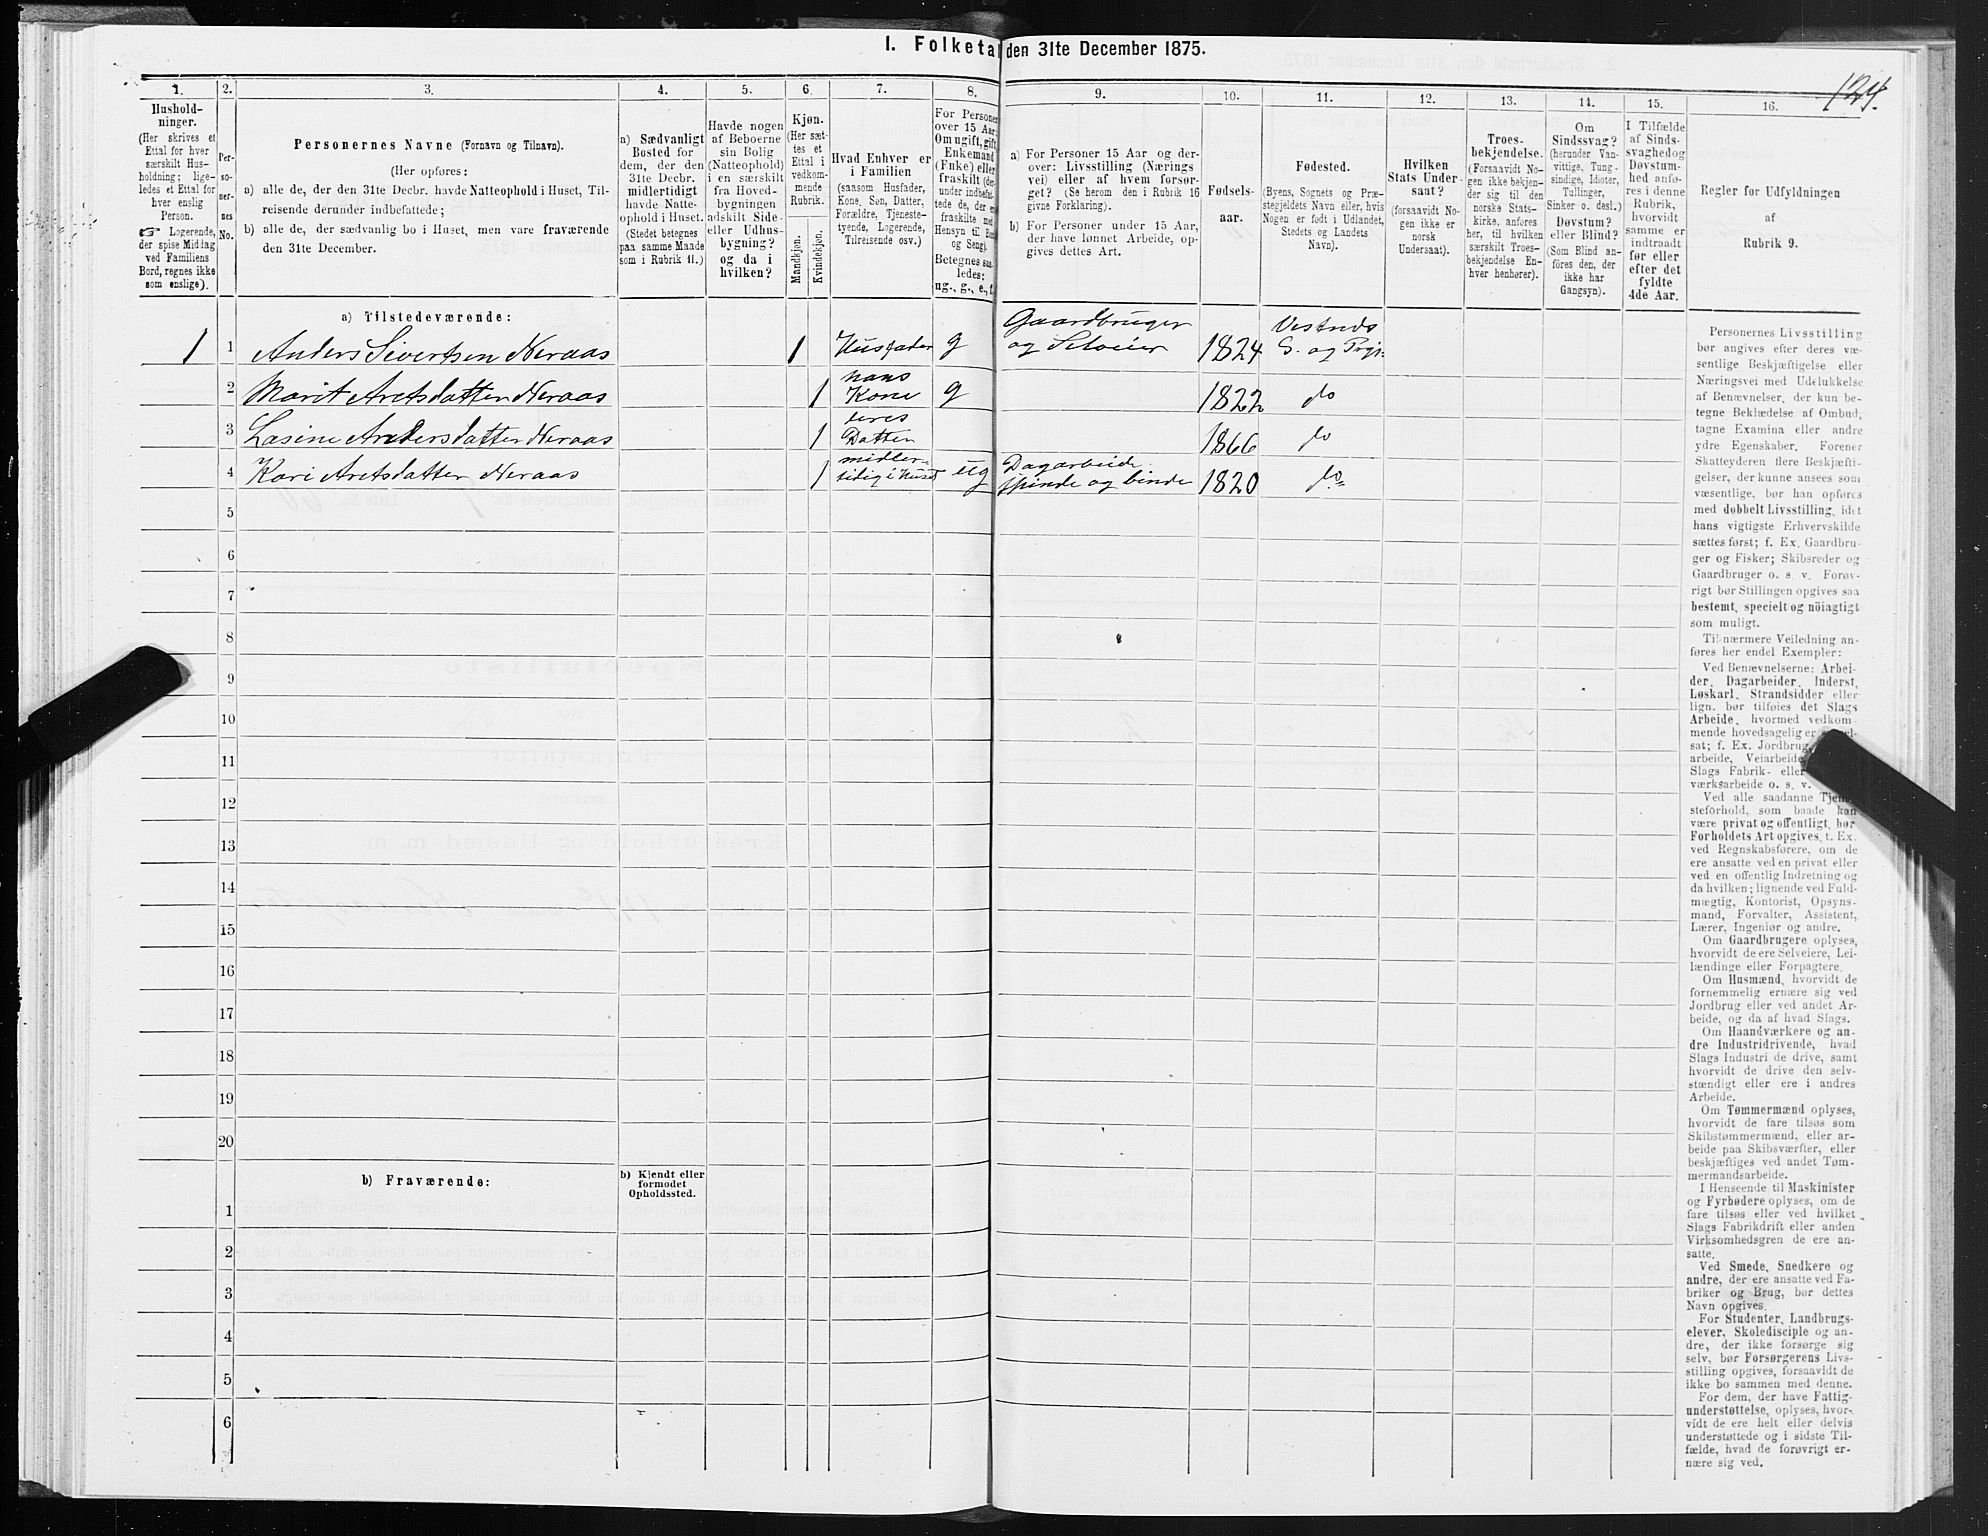 1. Folketa
den 31te December 1875.
124.
1.
2.
3.
4.
5.
6.
7.
8.
9.
10.
11.
12.
13.
14.
15.
16.
Hushold-
ninger.
(Her skrives et
Ettal for hver
særskilt Hus-
holdning; lige-
ledes et Ettal for
hver enslig
Person.
☞ Logerende,
der spise Middag
ved Familiens
Bord, regnes ikke
som enslige).
Per-
so-
ner-
nes
No.
Personernes Navne (Fornavn og Tilnavn).
(Her opføres:
a) alle de, der den 31te Decbr. havde Natteophold i Huset, Til-
reisende derunder indbefattede;
b) alle de, der sædvanlig bo i Huset, men vare fraværende
den 31te December.
a) Sædvanligt
Bosted for
dem, der den
31te Decbr.
midlertidigt
havde Natte-
ophold i Huset.
(Stedet betegnes
paa samme Maade
som i Rubrik 11.)
Havde nogen
af Beboerne
sin Bolig
(Natteophold)
i en særskilt
fra Hoved-
bygningen
adskilt Side-
eller Udhus-
bygning?
og da i
hvilken?
Kjøn.
(Her sæt-
tes et
Ettal i
vedkom-
mende
Rubrik.
Mandkjøn.
Kvindekjøn.
Hvad Enhver er
i Familien
(saasom Husfader,
Kone, Søn, Datter,
Forældre, Tjeneste-
tyende, Logerende,
Tilreisende osv.)
For Persone
over 15 Aar:
Om ugift, gift,
Enkemand
(Enke) eller
fraskilt (der-
under indbefat-
tede de, der er
fraskilte med
Hensyn til Bord
og Seng).
Betegnes saa-
ledes:
ug., g., e., f.
a) For Personer 15 Aar og der-
over: Livsstilling (Nærings
vei) eller af hvem forsør-
get? (Se herom den i Rubrik 16
givne Forklaring).
b) For Personer under 15 Aar,
der have lønnet Arbeide, op-
gives dettes Art.
Fødsels-
aar.
Fødested.
(Byens, Sognets og Præ-
stegjeldets Navn eller, hvis
Nogen er født i Udlandet,
Stedets og Landets
Navn).
Hvilken
Stats Under-
saat?
(forsaavidt No-
gen ikke er
norsk
Undersaat).
Troes-
bekjendelse.
(Forsaavidt No-
gen ikke bekjen-
der sig til den
norske Stats-
kirke, anføres
her, til hvilken
særskilt Troes-
bekjendelse En-
hver henhører).
Om
Sindssvag?
(herunder Van-
vittige, Tung-
sindige, Idioter,
Tullinger,
Sinker o. desl.)
Døvstum?
eller Blind?
(Som Blind an-
føres den, der
ikke har
Gangsyn).
I Tilfælde
af Sinds-
svaghed og
Døvstum-
hed anfø-
res i denne
Rubrik,
hvorvidt
samme er
indtraadt
før eller
efter det
fyldte
4de Aar.
Regler for Udfyldningen
af
Rubrik 9.
a) Tilstedeværende:
1 1 Anders Sivertsen Neraas 1 Husfader g Gaardbruger og Selveier 1824 Vestnes S. og Prgj:
2 Marit Aretsdatter Neraas 1 hans Kone g 1822 do
3 Lasine Andersdatter Neraas 1 deres Datter 1866 do
4 Kari Aretsdatter Neraas 1 midler- tidig i Huset ug Dagarbeide spinde og binde 1820 do
5
6
7
8
9
10
11
12
13
14
15
16
17
18
19
20
b) Fraværende:
b) Kjendt eller
formodet
Opholdssted.
1
2
3
4
5
6
Personernes Livsstilling
bør angives efter deres væ-
sentlige Beskjæftigelse eller
Næringsvei med Udelukkelse
af Benævnelser, der kun be-
tegne Beklædelse af Ombud,
tagne Examina eller andre
ydre Egenskaber. Forener
Skatteyderen flere Beskjæfti-
gelser, der kunne ansees som
væsentlige, bør han opføres
med dobbelt Livsstilling, idet
hans vigtigste Erhvervskilde
sættes først; f. Ex. Gaardbru-
ger og Fisker; Skibsreder og
Gaardbruger o. s. v. Forøv-
rigt bør Stillingen opgives saa
bestemt, specielt og nöiagtigt
som muligt.
Til nærmere Veiledning an-
føres her endel Exempler:
Ved Benævnelserne: Arbei-
der, Dagarbeider, Inderst,
Løskarl, Strandsidder eller
lign. bør tilføies det Slags
Arbeide, hvormed vedkom-
mende hovedsagelig er
sat; f. Ex. Jordbrug
arbeide, Veiarbeide
Slags Fabrik- eller
værksarbeide o. s. v.
Ved alle saadanne Tjene
steforhold, som baade kan
være privat og offentligt, bør
Forholdets Art opgives, t. Ex.
ved Regnskabsførere, om de
ere ansatte ved en privat eller
ved en offentlig Indretning og
da hvilken; lignende ved Fuld-
mægtig, Kontorist, Opsyns-
mand, Forvalter, Assistent,
Lærer, Ingeniør og andre.
Om Gaardbrugere oplyses,
hvorvidt de ere Selveiere, Lei-
lændinge eller Forpagtere.
Om Husmænd, hvorvidt de
fornemmelig ernære sig ved
Jordbrug eller ved andet Ar-
beide, og da af hvad Slags.
Om Haandværkere og an-
dre Industridrivende, hvad
Slags Industri de drive, samt
hvorvidt de drive den selv-
stændigt eller ere i andres
Arbeide.
Om Tømmermænd oplyses,
hvorvidt de fare tilsøs som
Skibstømmermænd, eller ar-
beide paa Skibsværfter, eller
beskjæftiges ved andet Tøm-
mermandsarbeide.
I Henseende til Maskinister
og Fyrbødere oplyses, om de
fare tilsøs eller ved hvilket
Slags Fabrikdrift eller anden
Virksomhedsgren de ere an-
satte.
Ved Smede, Snedkere og
andre, der ere ansatte ved Fa-
briker og Brug, bør dettes
Navn opgives.
For Studenter, Landbrugs-
elever, Skoledisciple og an-
dre, der ikke forsørge sig
selv, bør Forsørgerens Livs-
stilling opgives, forsaavidt de
ikke bo sammen med denne.
For dem, der have Fattig-
understøttelse, oplyses, hvor-
vidt de ere helt eller delvis
understøttede og i sidste Til-
fælde, hvad de forøvrigt er-
nære sig ved.